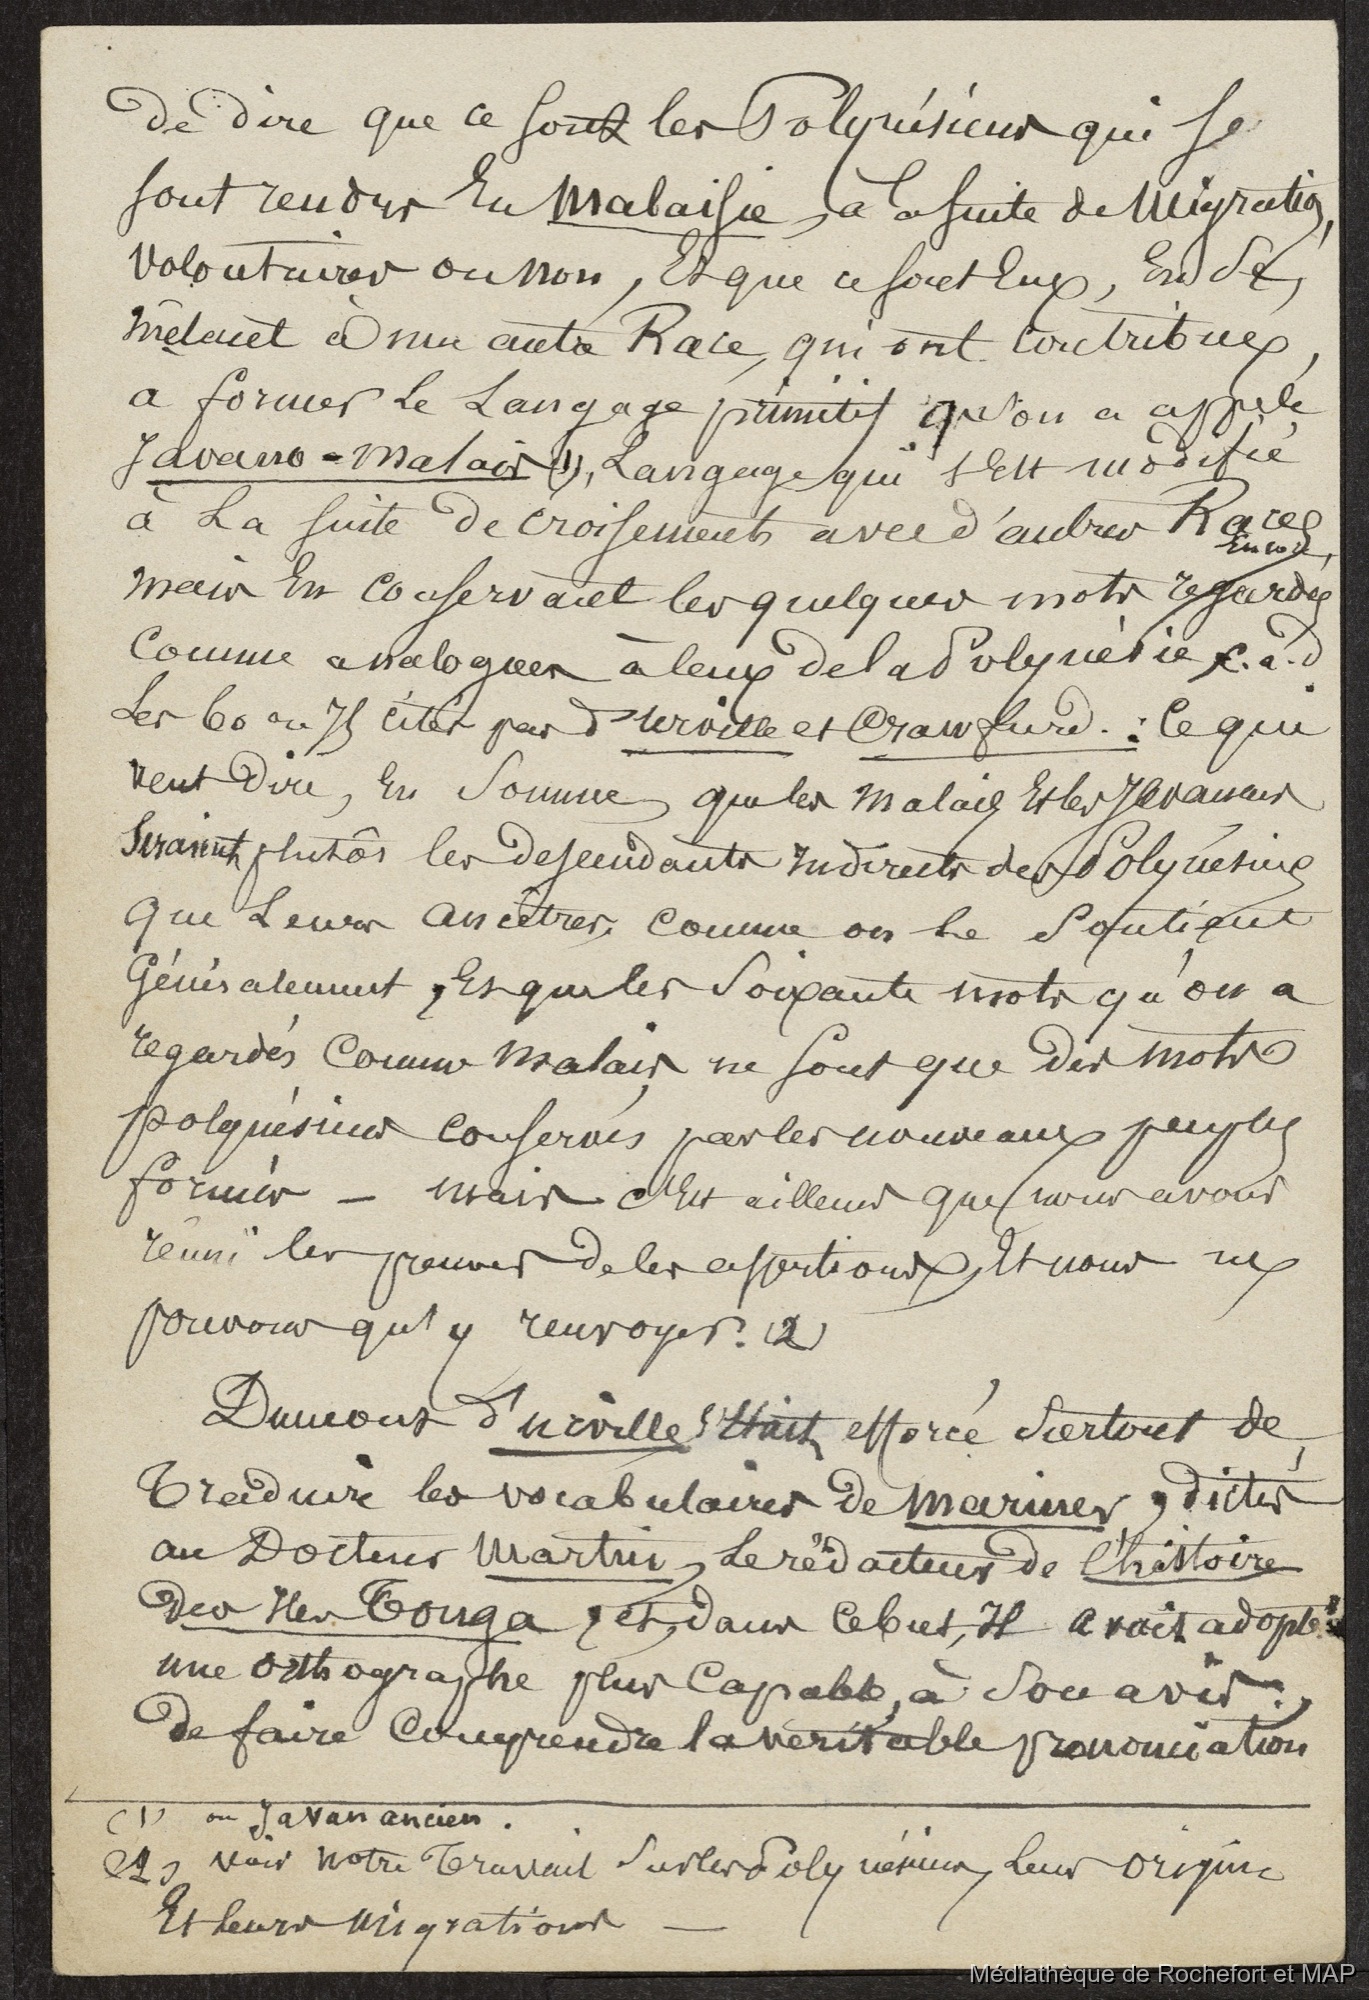 de dire que ce sont les Polynésiens qui se
sont rendus En Malaisie, à la suite de Migrations,
volontaires ou non, Et que ce sont Eux, En se
mêlant à une autre Race, qui ont contribué
a former le Langage primitif qu'on a appelé
Javano-Malais (1), Langage qui s'Est modifié
à La suite de croisements avec d'autres Races
Encore,
mais En conservant les quelques mots regardés
comme analogues à ceux de la Polynésie c.-à-d
Les 60 ou 71 cités par d'urville et Crawfurd. : Ce qui
veut dire, En Somme, que les Malais Et les Javanais
Seraient plutôt les descendants Indirects des Polynésiens
que Leurs Ancêtres, comme on Le Soutient
Généralement, Et que les Soixante mots qu'on a
regardés comme Malais ne sont que des mots
polynésiens conservés par les nouveaux peuples
formés — mais c'Est ailleurs que nous avons
réuni les preuves de ces assertions, Et nous ne
pouvons qu'y renvoyer. (2)
Dumont d'urville s'Etait efforcé Surtout de
Traduire les vocabulaires de Mariner, dictés
au Docteur Martin, Le rédacteur de L'histoire
des Iles Tonga, et, dans ce but, Il avait adopté
une orthographe plus Capable, à Son avis,
de faire Comprendre la veritable prononciation
(1) ou Javan ancien.
(2) voir notre Travail Sur les Polynésiens, Leur origine
Et Leurs Migrations —
Médiathèque de Rochefort et MAP